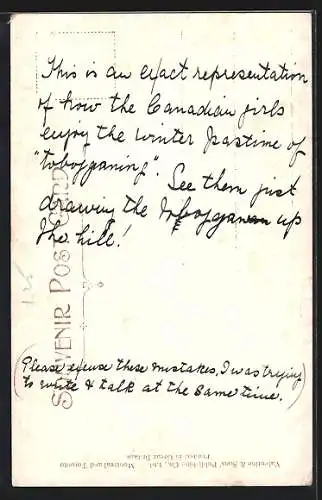 This is an exact representation
of how the Canadian girls
enjoy the winter pastime of
"tobogganing". See them just
drawing the toboggan up
the hill!
(Please excuse these mistakes, I was trying
to write & talk at the same time.)
SOUVENIR POST CARD
Valentine & Sons' Publishing Co., Ltd. Montreal and Toronto
Printed in Great Britain